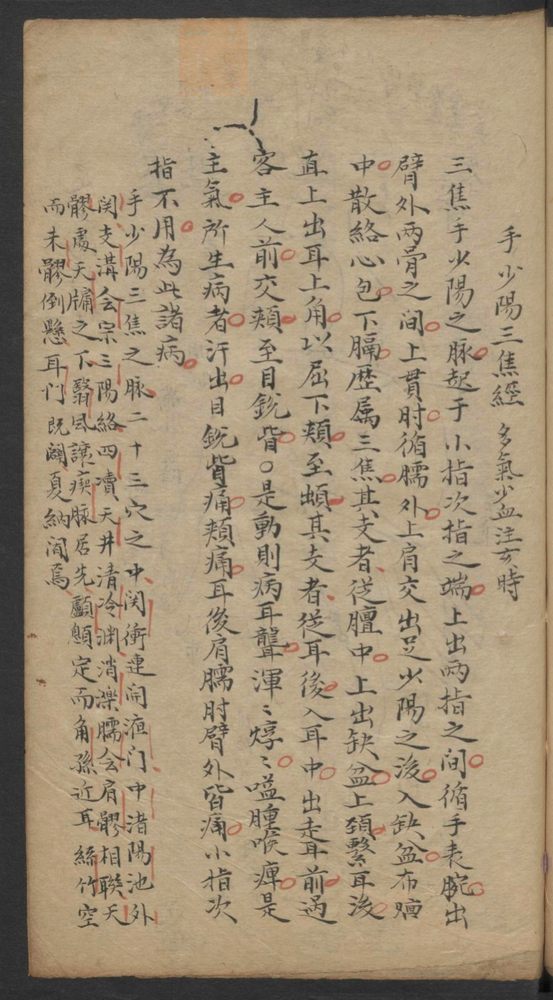 手少陽三焦經 多氣少血注亥時
三焦手少陽之脉起于小指次指之端上出兩指之间循手表腕出
臂外兩骨之间上貫肘循臑外上肩交出足少陽之後入缺盆布膻
中散絡心包下膈歷属三焦其支者從膻中上出缺盆上頚繫耳後
直上出耳上角以屈下頰至䪼其支者從耳後入耳中出走耳前過
客主人前交頰至目銳眥○是動則病耳聾渾〻焞〻嗌腫喉痺是
主氣所生病者汗出目銳眥痛頰痛耳後肩臑肘臂外皆痛小指次
指不用為此諸病
手少陽三焦之脉二十三穴之中関衝連闹液门中渚陽池外
関支溝会宗三陽絡四瀆天井清冷渊消濼臑会肩髎相聯天
髎處天牖之下翳风讓瘈脉居先顱顖定而角孫近耳絲竹空
而禾髎倒懸耳门既闢夏納闻焉